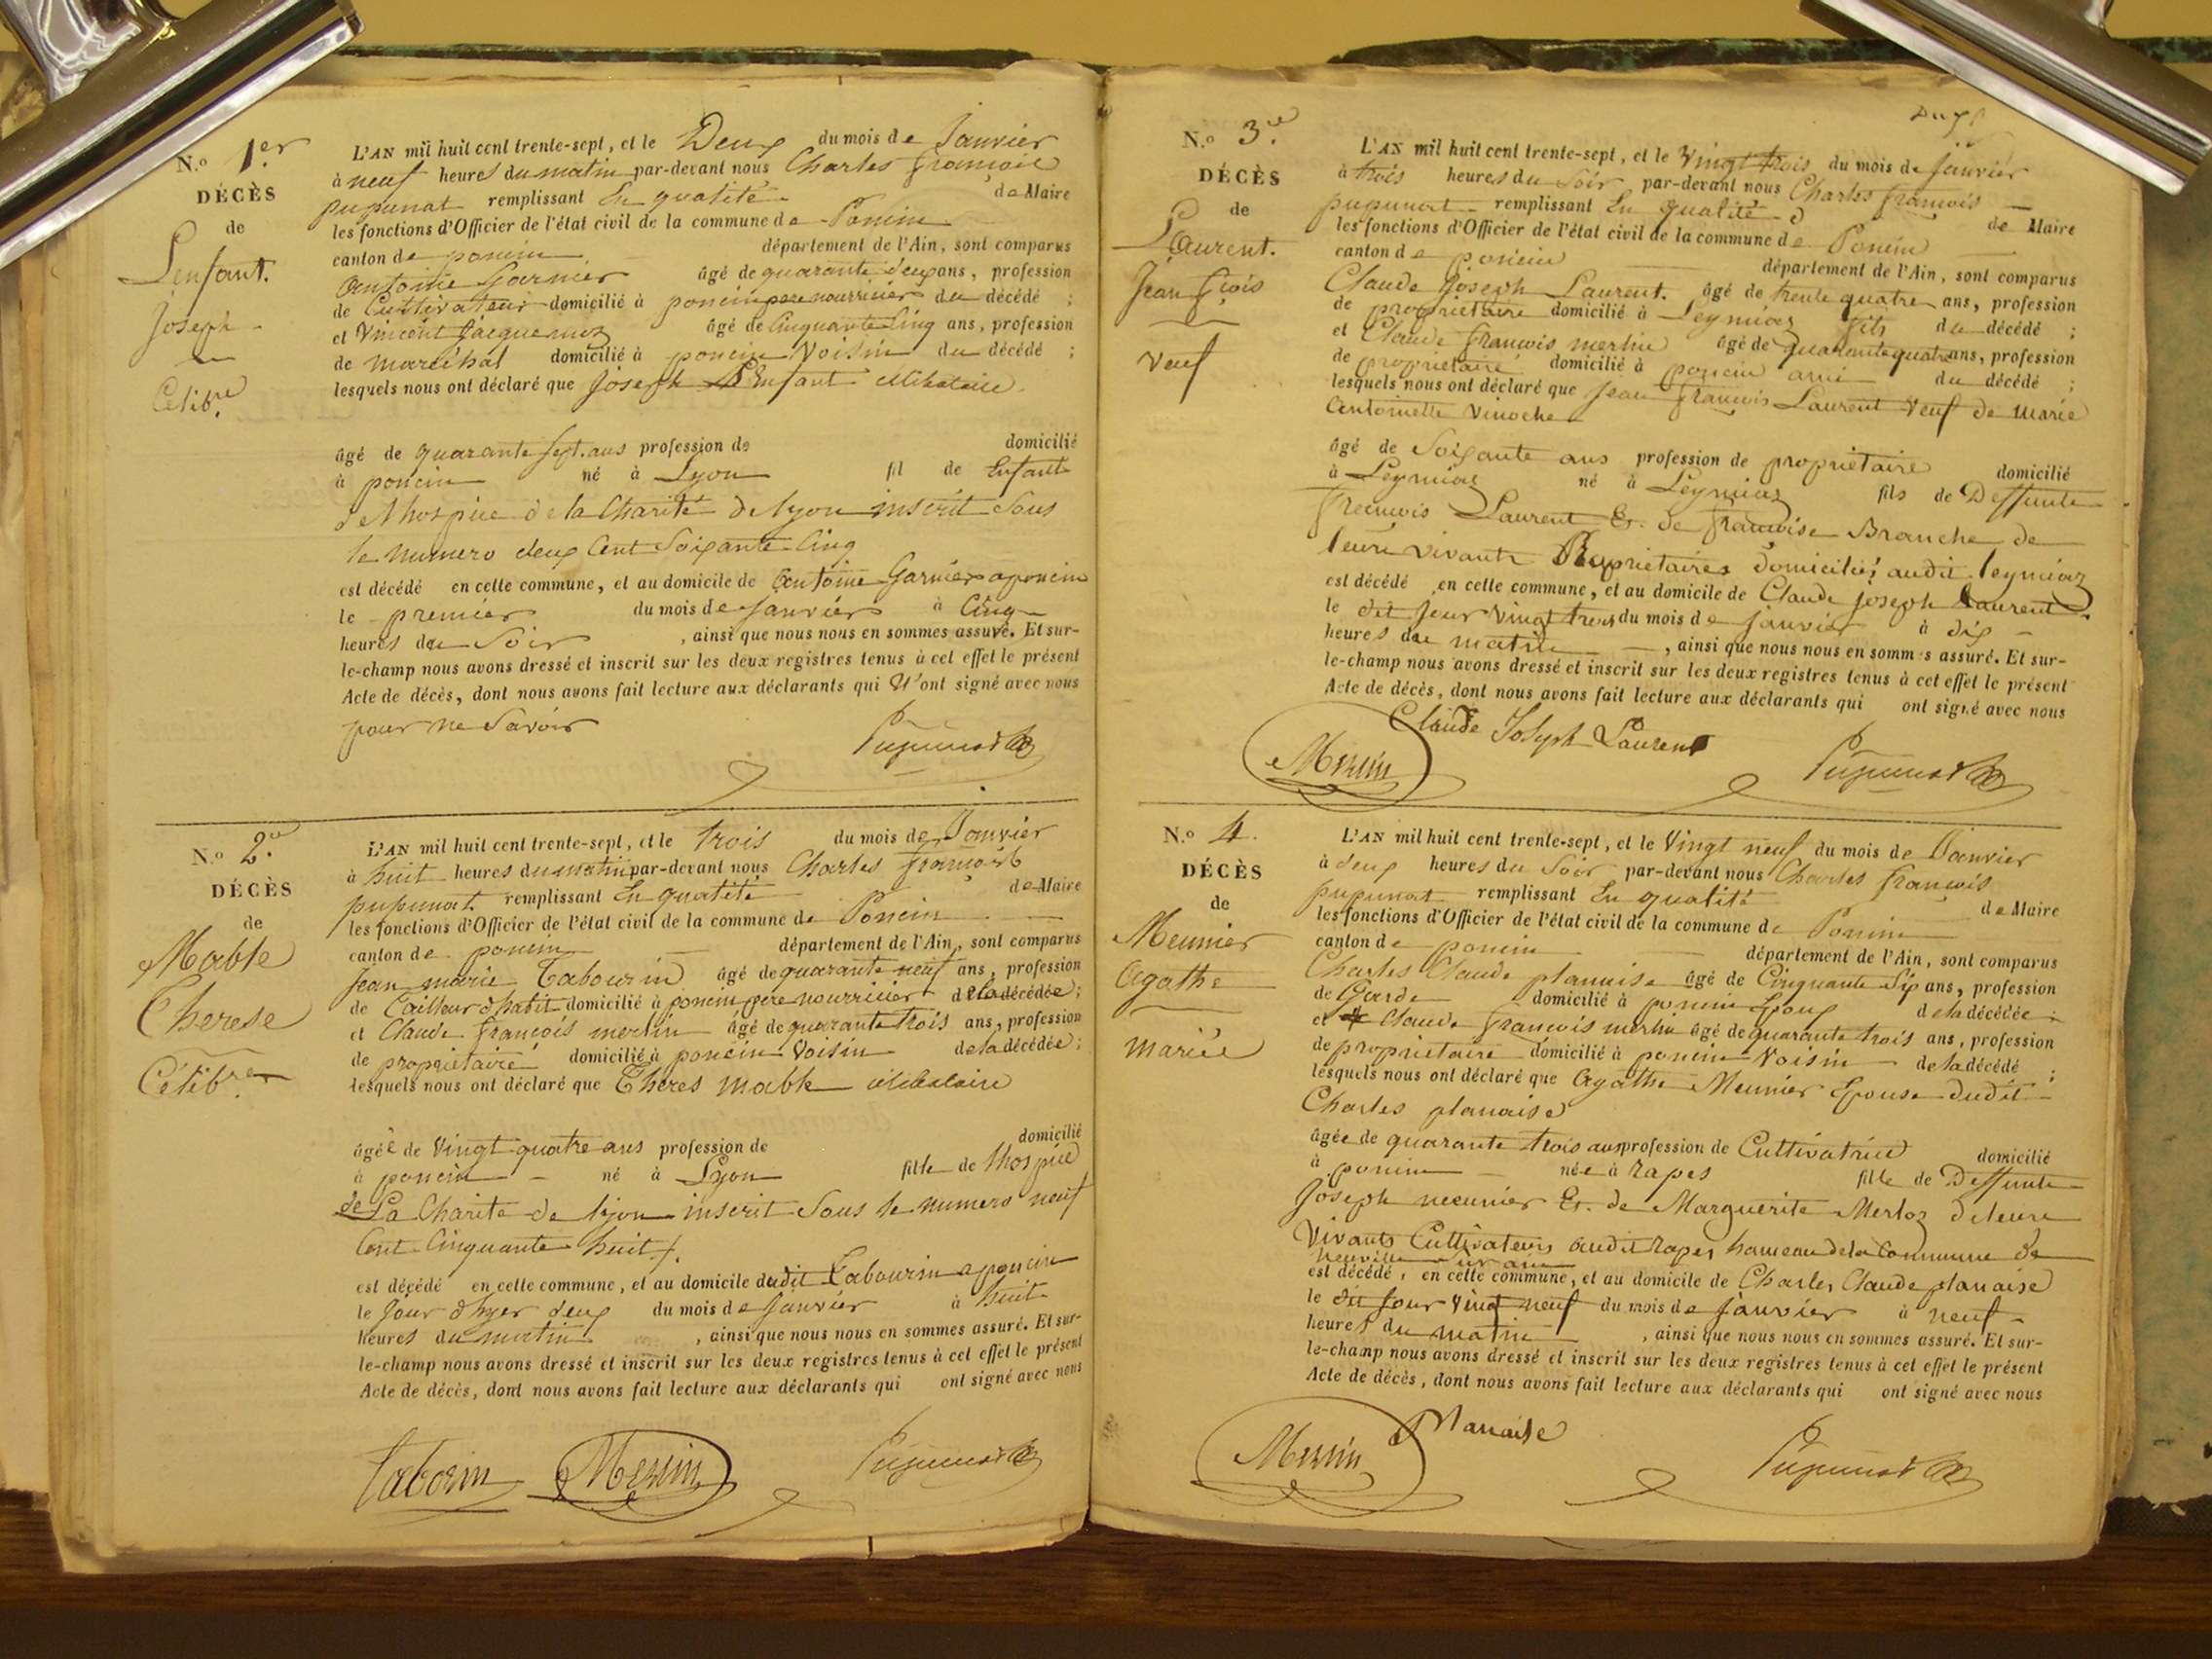 N.o 1er
DÉCÈS
de
L'enfant.
Joseph
Célibre
L'AN mil huit cent trente-sept, et le Deux du mois de Janvier
à neuf heures du matin par-devant nous Charles françois
pupunat remplissant En qualité de Maire
les fonctions d'Officier de l'état civil de la commune de Poncin
canton de poncin département de l'Ain, sont comparus
Antoine Garnier âgé de quarante deux ans, profession
de Cultivateur domicilié à poncin pere nourricier du décédé ;
et Vincent Jacquemoz âgé de Cinquante Cinq ans, profession
de maréchal domicilié à poncin Voisin du décédé ;
lesquels nous ont déclaré que Joseph L'Enfant célibataire
âgé de quarante sept ans profession de domicilié
à poncin né à Lyon fil de Enfant
de l'hospice de la Charité de lyon inscrit Sous
le numero deux Cent Soixante Cinq
est décédé en cette commune, et au domicile de Antoine Garnier a poncin
le premier du mois de Janvier à Cinq
heures du Soir , ainsi que nous nous en sommes assuré. Et sur-
le-champ nous avons dressé et inscrit sur les deux registres tenus à cet effet le présent
Acte de décès, dont nous avons fait lecture aux déclarants qui N'ont signé avec nous
pour ne Savoir
Pupunat
N.o 2.e
DÉCÈS
de
Mable
Therese
Célibre
L'AN mil huit cent trente-sept, et le trois du mois de Janvier
à huit heures du matin par-devant nous Charles françois
pupunat remplissant En qualité de Maire
les fonctions d'Officier de l'état civil de la commune de Poncin
canton de poncin département de l'Ain, sont comparus
Jean marie Tabourin âgé de quarante neuf ans, profession
de Tailleur d'habit domicilié à poncin pere nourricier de la décédée ;
et Claude françois merlin âgé de quarante trois ans, profession
de propriétaire domicilié à poncin Voisin de la décédée ;
lesquels nous ont déclaré que Théres mable célibataire
âgée de Vingt quatre ans profession de domicilié
à poncin né à Lyon fille de lhospice
de La Charité de lyon inscrit Sous le numero neuf
Cent Cinquante huit
est décédé en cette commune, et au domicile dudit Tabourin a poncin
le Jour d'hyer deux du mois de Janvier à huit
heures du matin , ainsi que nous nous en sommes assuré. Et sur-
le-champ nous avons dressé et inscrit sur les deux registres tenus à cet effet le présent
Acte de décès, dont nous avons fait lecture aux déclarants qui ont signé avec nous
taborin Merlin Pupunat
N.o 3.e
DÉCÈS
de
Laurent.
Jean fçois
Veuf
L'AN mil huit cent trente-sept, et le Vingt trois du mois de Janvier
à trois heures du Soir par-devant nous Charles françois
pupunat remplissant En qualité de Maire
les fonctions d'Officier de l'état civil de la commune de Poncin
canton de poncin département de l'Ain, sont comparus
Claude Joseph Laurent. âgé de trente quatre ans, profession
de propriétaire domicilié à Leymiaz fils du décédé ;
et Claude françois merlin âgé de quarante quatre ans, profession
de propriétaire domicilié à poncin ami du décédé ;
lesquels nous ont déclaré que Jean françois Laurent Veuf de Marie
Antoinette Vinoche
âgé de Soixante ans profession de propriétaire domicilié
à Leymiaz né à Leymiaz fils de Deffunte
françois Laurent Et de françoise Branche de
leurs vivants Propriétaires domiciliés audit leymiaz
est décédé en cette commune, et au domicile de Claude joseph Laurent
le dit jour Vingt trois du mois de janvier à dix
heures du matin , ainsi que nous nous en sommes assuré. Et sur-
le-champ nous avons dressé et inscrit sur les deux registres tenus à cet effet le présent
Acte de décès, dont nous avons fait lecture aux déclarants qui ont signé avec nous
Claude Joseph Laurent
Merlin Pupunat
N.o 4.
DÉCÈS
de
Meunier
Agathe
mariée
L'AN mil huit cent trente-sept, et le Vingt neuf du mois de Janvier
à deux heures du Soir par-devant nous Charles françois
pupunat remplissant En qualité de Maire
les fonctions d'Officier de l'état civil de la commune de Poncin
canton de poncin département de l'Ain, sont comparus
Charles Claude planaise âgé de Cinquante Six ans, profession
de Garde domicilié à poncin Epoux de la décédée ;
et Claude françois merlin âgé de quarante trois ans, profession
de propriétaire domicilié à poncin Voisin de la décédé ;
lesquels nous ont déclaré que Agathe Meunier Epouse dudit
Charles planaise
âgée de quarante trois ans profession de Cultivatrice domicilié
à poncin née à Rapes fille de Deffunte
Joseph meunier Et de Marguerite Merloz de leurs
Vivants Cultivateurs audit Rapes hameau de la Commune de
Neuville Sur ain
est décédé, en cette commune, et au domicile de Charles Claude planaise
le dit Jour Vingt neuf du mois de janvier à neuf
heures du matin , ainsi que nous nous en sommes assuré. Et sur-
le-champ nous avons dressé et inscrit sur les deux registres tenus à cet effet le présent
Acte de décès, dont nous avons fait lecture aux déclarants qui ont signé avec nous
Merlin Planaise Pupunat